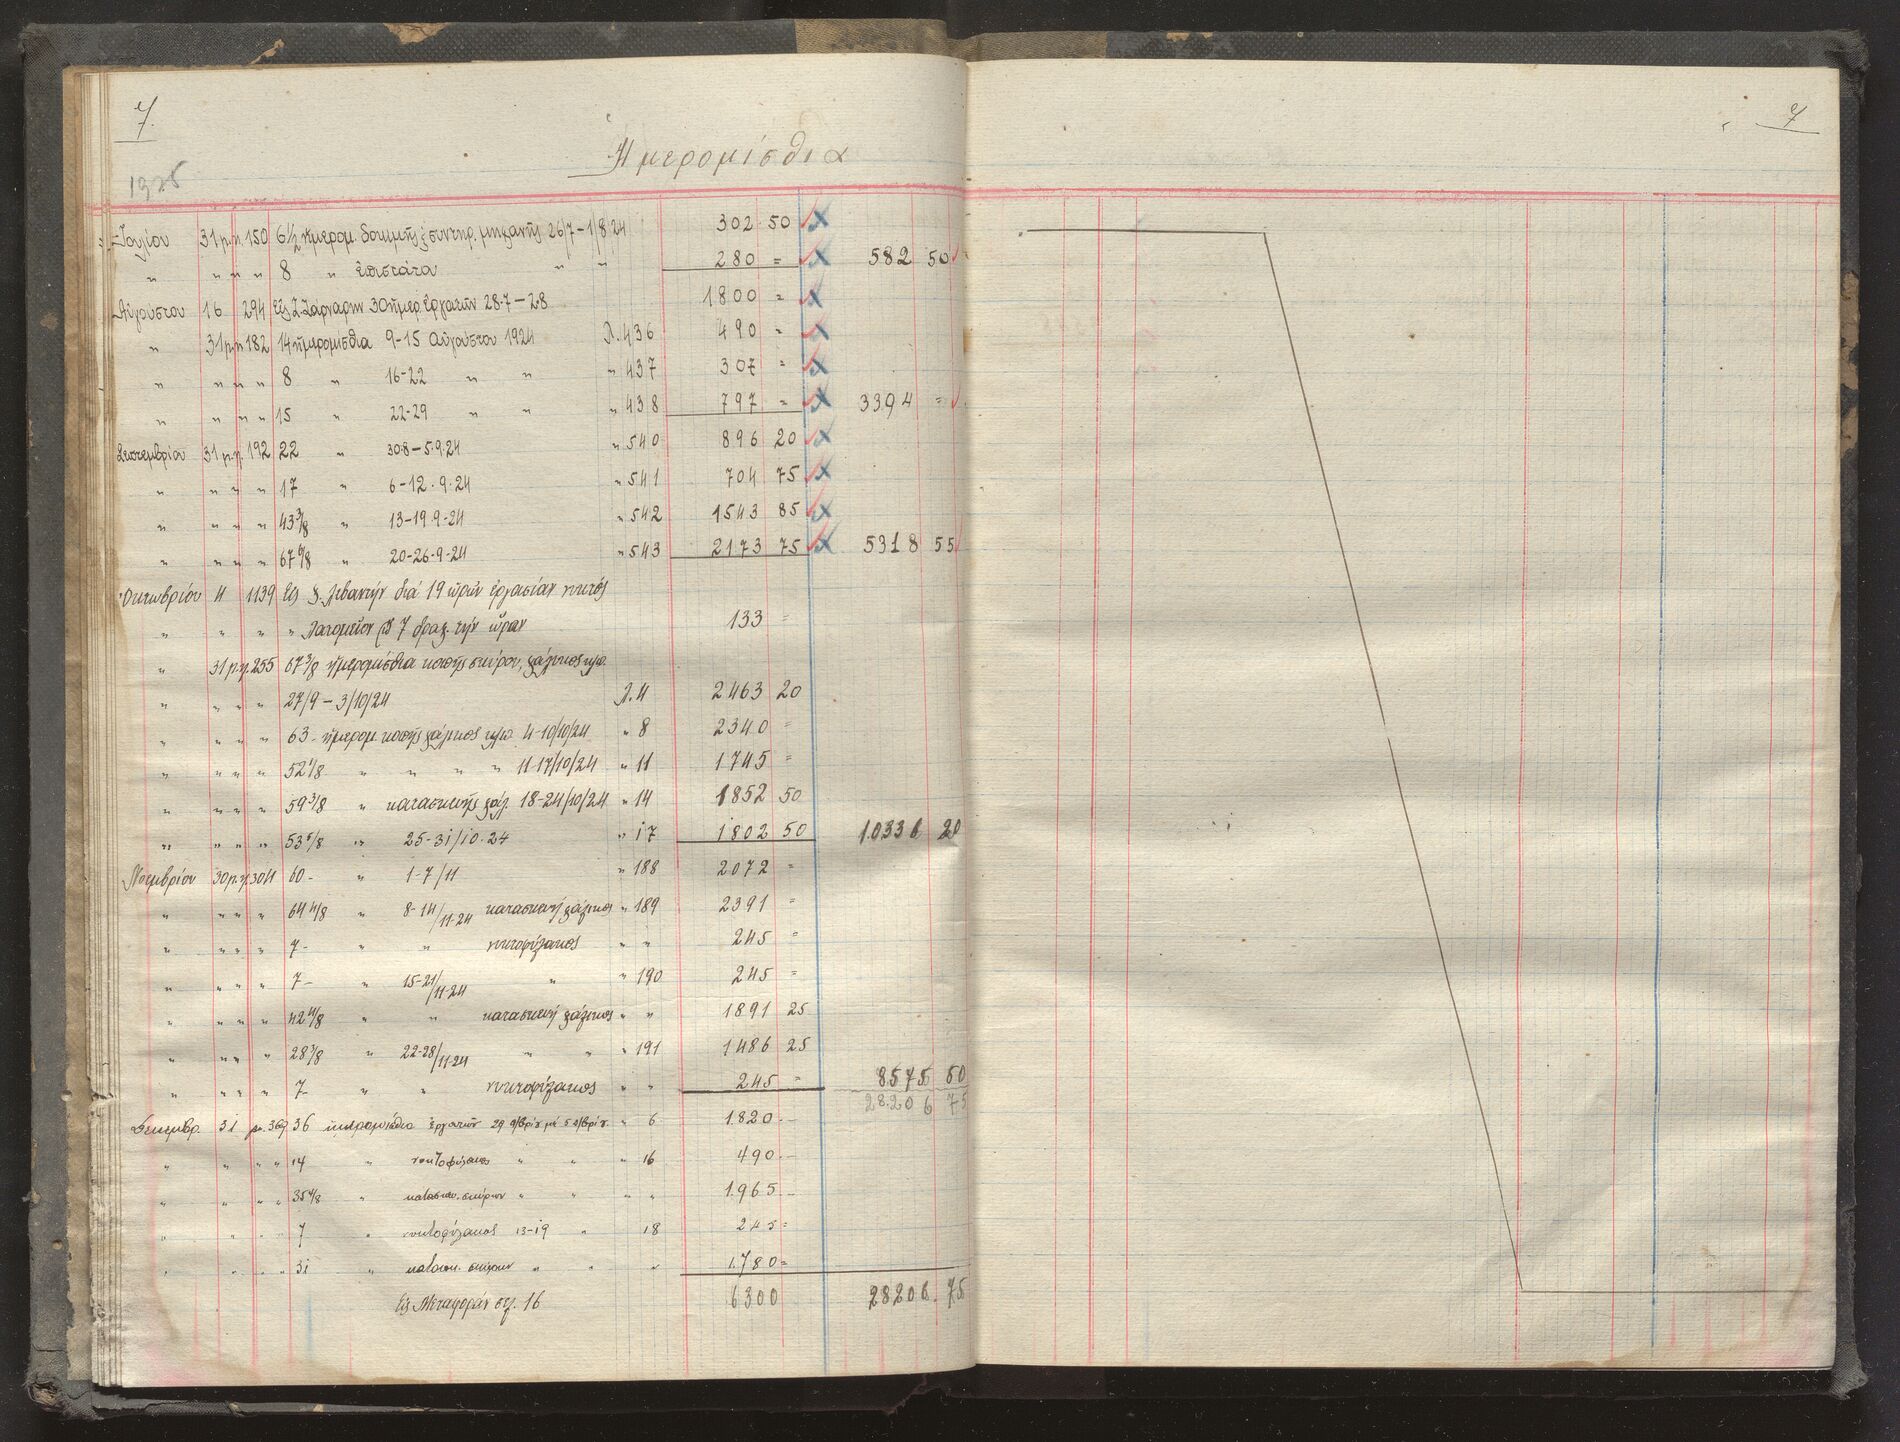 7.
7
Ἡμερομίσθια
Ἰουλίου 31 μ.η. 150 6½ ἡμερομ. δοκιμῆς & συντηρ. μηχανῆς 26/7-1/8 24 302 50
" " " " 8 " ἐπιστάτου " " 280 = 582 50
Αὐγούστου 16 294 30 ἡμερ. ἐργατῶν 28-7-2-8 1800 =
" 31 μ.η. 182 14 ἡμερομίσθια 9-15 Αὐγούστου 1924 Λ. 436 490 =
" " " " 8 " 16-22 " " " 437 307 =
" " " " 15 " 22-29 " " " 438 797 = 3394 =
Σεπτεμβρίου 31 μ.η. 192 22 " 30-8-5.9.24 " 540 896 20
" " " " 17 " 6-12.9.24 " 541 704 75
" " " " 43 3/8 " 13-19.9-24 " 542 1543 85
" " " " 67 6/8 " 20-26-9-24 " 543 2173 75 5318 55
Ὀκτωβρίου 4 1139 διὰ 19 ὡρῶν ἐργασίαν νυκτός
" " " " Λατομεῖον 7 δραχ. τὴν ὥραν 133 =
" 31 μ.η. 255 67 3/8 ἡμερομίσθια κοπῆς σκύρου, χάλικος κλπ.
" " " " 27/9-3/10/24 Λ. 4 2463 20
" " " " 63- ἡμερομ. κοπῆς χάλικος κλπ. 4-10/10/24 " 8 2340 =
" " " " 52 1/8 " " " " 11-17/10/24 " 11 1745 =
" " " " 59 3/8 " κατασκευῆς χάλ. 18-24/10/24 " 14 1852 50
" " " " 53 5/8 " 25-31/10-24 " 17 1802 50 10336 20
Νοεμβρίου 30 μ.η. 304 60- " 1-7/11 " 188 2072 =
" " " " 64 4/8 " 8-14/11-24 κατασκευὴ χάλικος " 189 2391 =
" " " " 7- " " νυκτοφύλακος " " 245 =
" " " " 7- " 15-21/11-24 " " 190 245 =
" " " " 42 4/8 " " κατασκευὴ χάλικος " " 1891 25
" " " " 28 7/8 " 22-28/11-24 " " " 191 1486 25
" " " " 7- " " νυκτοφύλακος " " 245 = 8575 50
28.206 75
Δεκεμβρ. 31 μ. 369 36 ἡμερομίσθια ἐργατῶν " 6 1.820.-
" " " " 14 " νυκτοφύλακος " " " 16 490.-
" " " " 35 4/8 " κατασκευ. σκύρων " " " " 1.965.-
" " " " 7 " νυκτοφύλακος 13-19 " 18 245 =
" " " " 31 " κατασκ. σκύρων " " " 1.780 =
Εἰς Μεταφορὰν σελ. 16 6300 28206.75